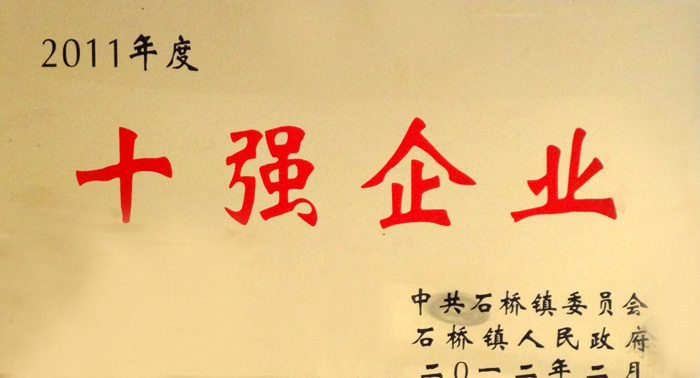 2011年度
十强企业
中共石桥镇委员会
石桥镇人民政府
二〇一二年二月